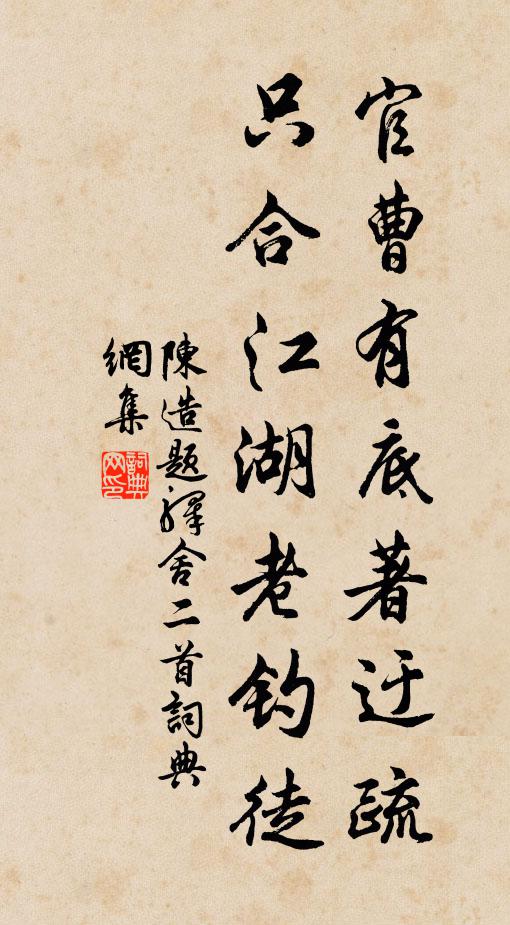 官曹有底著迂疏
只合江湖老钓徒
陳造題驛舍二首詞典
網集
詞典
网印